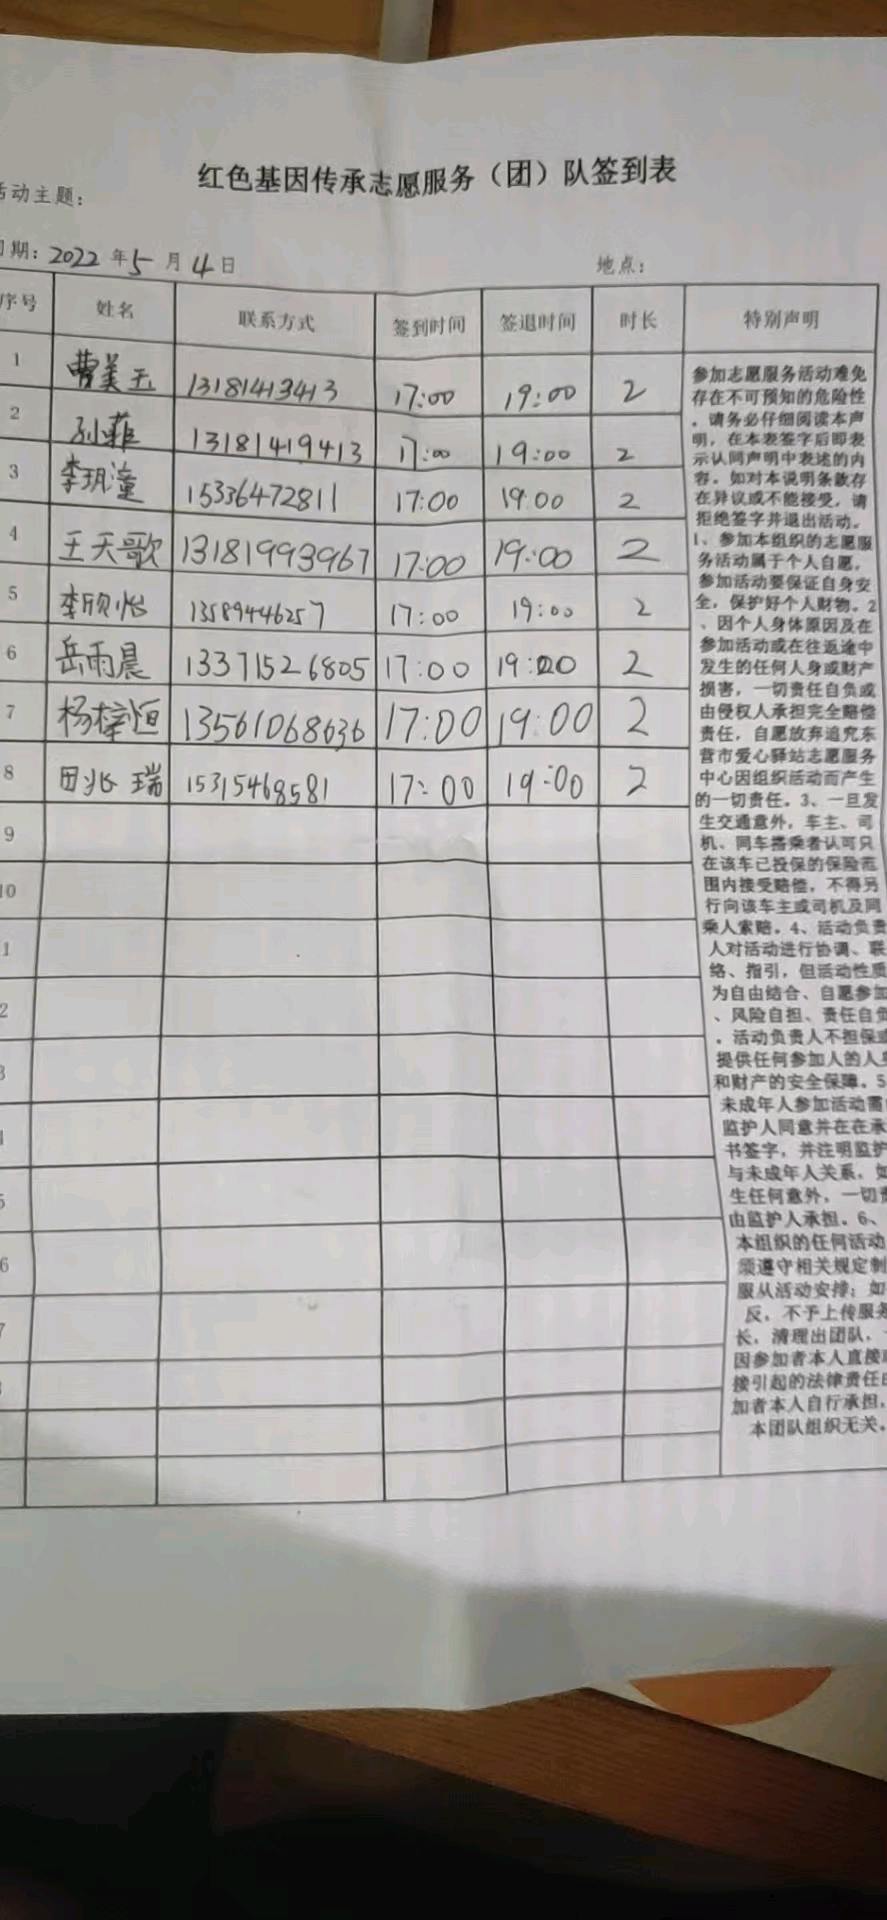 红色基因传承志愿服务（团）队签到表
活动主题：
日期：2022年5月4日 地点：
序号 姓名 联系方式 签到时间 签退时间 时长 特别声明
1 曹美玉 13181413413 17:00 19:00 2
2 孙菲 13181419413 17:00 19:00 2
3 李玥潼 15336472811 17:00 19:00 2
4 王天歌 13181993967 17:00 19:00 2
5 李欣怡 13589446257 17:00 19:00 2
6 岳雨晨 13371526805 17:00 19:00 2
7 杨梓恒 13561068636 17:00 19:00 2
8 田兆瑞 15315468581 17:00 19:00 2
9
10
1
2
3
4
5
6
7
参加志愿服务活动难免
存在不可预知的危险性
，请务必仔细阅读本声
明，在本表签字后即表
示认同声明中表述的内
容。如对本说明条款存
在异议或不能接受，请
拒绝签字并退出活动。
1、参加本组织的志愿服
务活动属于个人自愿，
参加活动要保证自身安
全，保护好个人财物。2
、因个人身体原因及在
参加活动或在往返途中
发生的任何人身或财产
损害，一切责任自负或
由侵权人承担完全赔偿
责任，自愿放弃追究东
营市爱心驿站志愿服务
中心因组织活动而产生
的一切责任。3、一旦发
生交通意外，车主、司
机、同车搭乘者认可只
在该车已投保的保险范
围内接受赔偿，不得另
行向该车主或司机及同
乘人索赔。4、活动负责
人对活动进行协调、联
络、指引，但活动性质
为自由结合、自愿参加
、风险自担、责任自负
。活动负责人不担保或
提供任何参加人的人身
和财产的安全保障。5
未成年人参加活动需
监护人同意并在在承
书签字，并注明监护
与未成年人关系，如
生任何意外，一切责
由监护人承担。6、
本组织的任何活动
须遵守相关规定制
服从活动安排；如
反，不予上传服务
长，清理出团队，
因参加者本人直接
接引起的法律责任由
加者本人自行承担，
本团队组织无关。